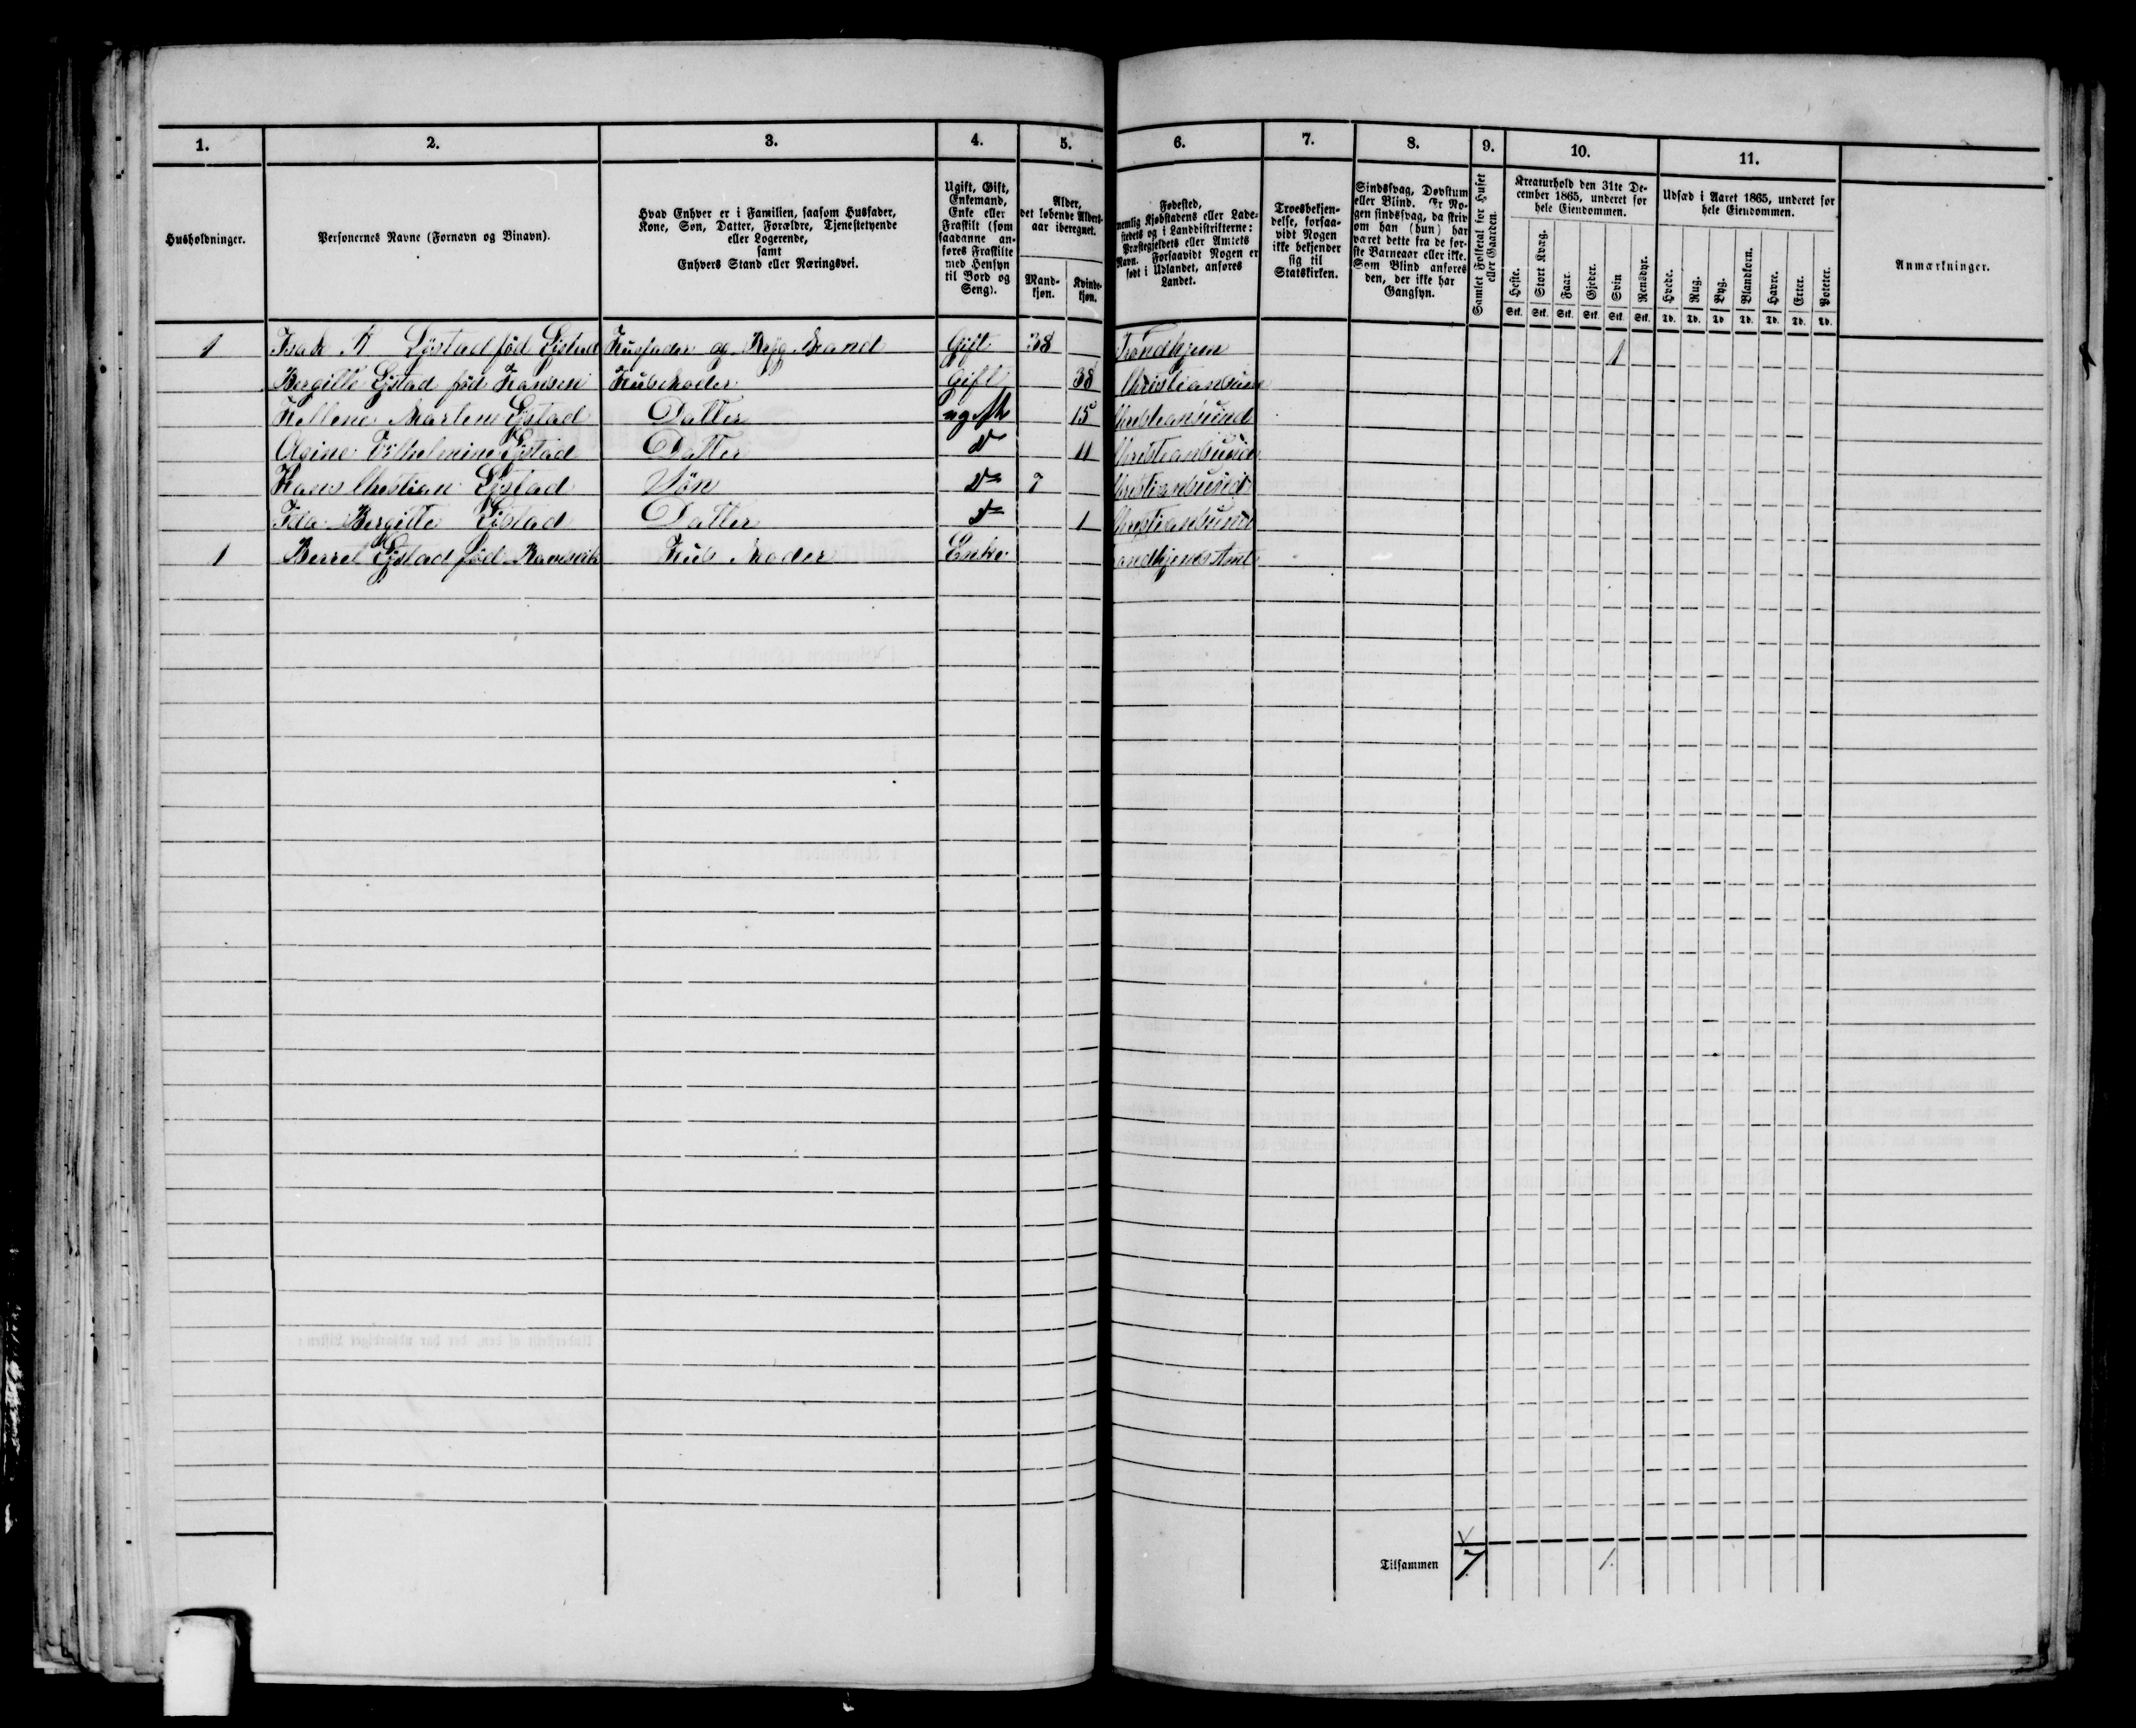 1. 2. 3. 4. 5. 6. 7. 8. 9. 10. 11.
Husholdninger.
Personernes Navne (Fornavn og Binavn).
Hvad Enhver er i Familien, saasom Husfader,
Kone, Søn, Datter, Forældre, Tjenestetyende
eller Logerende,
samt
Enhvers Stand eller Næringsvei.
Ugift, Gift,
Enkemand,
Enke eller
Fraskilt (som
saadanne an-
føres Fraskilte
med Hensyn
til Bord og
Seng).
Alder,
det løbende Alders-
aar iberegnet.
Mand-
kjøn.
Kvinde-
kjøn.
Fødested,
nemlig Kjøbstadens eller Lade-
stedets og i Landdistrikterne:
Præstegjeldets eller Amtets
Navn. Forsaavidt Nogen er
født i Udlandet, anføres
Landet.
Troesbekjen-
delse, forsaa-
vidt Nogen
ikke bekjender
sig til
Statskirken.
Sindssvag, Døvstum
eller Blind. Er No-
gen sindssvag, da skriv
om han (hun) har
været dette fra de før-
ste Barneaar eller ikke.
Som Blind anføres
den, der ikke har
Gangsyn.
Samlet Folketal for Huset
eller Gaarden.
Kreaturhold den 31te De-
cember 1865, underet for
hele Eiendommen.
Heste. Stort Kvæg. Faar. Gjeder. Svin Rensdyr.
Stk. Stk. Stk. Stk. Stk. Stk.
Udsæd i Aaret 1865, underet for
hele Eiendommen.
Hvede. Rug. Byg. Blandkorn. Havre. Erter. Poteter.
Td. Td. Td Td. Td. Td. Td.
Anmærkninger.
1 Isak Løstad fød Løstad Husfader og Mand Gift 38 Trondhjem 1
Bergitte Løstad fød Hansen Hus Moder Gift 38 Christiansund
Hellene Martene Løstad Datter ugift 15 Christiansund
Løstad Datter do 11 Christiansund
Hans Christian Løstad Søn do 7 Christiansund
Ida Bergitte Løstad Datter do 1 Christiansund
1 Berret Løstad fød Hus Moder Enke Amt
Tilsammen 7 1.